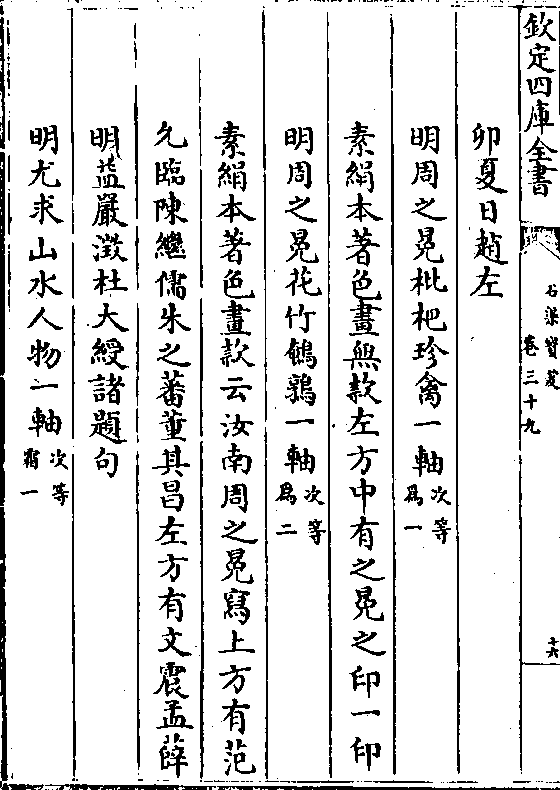 欽定四庫全書
石渠寶笈
卷三十九
十六
卯夏日趙左
明周之冕枇杷珍禽一軸次等爲一
素絹本著色畫無款左方中有之冕之印一印
明周之冕花竹鵪鶉一軸次等爲二
素絹本著色畫款云汝南周之冕寫上方有范
允臨陳繼儒朱之蕃董其昌左方有文震孟薛
明益嚴澂杜大綬諸題句
明尤求山水人物一軸次等霜一